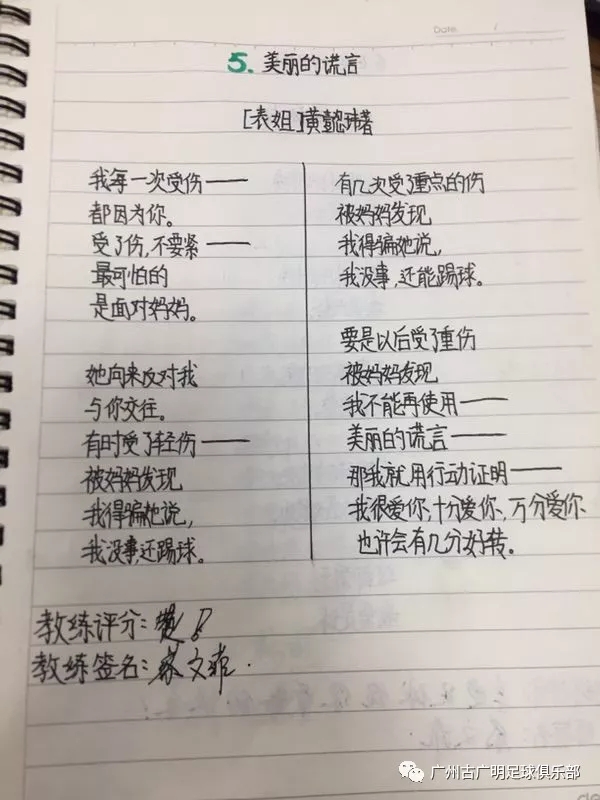 Date.
5. 美丽的谎言
[表姐]黄懿玮著
我每一次受伤——
都因为你。
受了伤,不要紧——
最可怕的
是面对妈妈。
她向来反对我
与你交往。
有时受了轻伤——
被妈妈发现
我得骗她说,
我没事,还踢球。
有几次受了重点的伤
被妈妈发现
我得骗她说,
我没事,还能踢球。
要是以后受了重伤
被妈妈发现
我不能再使用——
美丽的谎言——
那我就用行动证明——
我很爱你,十分爱你、万分爱你
也许会有几分好转。
教练评分:赞!
教练签名:蔡文雅.
广州古广明足球俱乐部